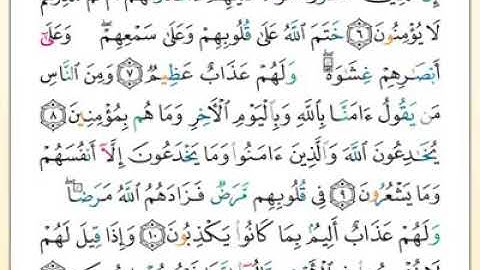 لَا يُؤْمِنُونَ ﴿٦﴾ خَتَمَ ٱللَّهُ عَلَىٰ قُلُوبِهِمْ وَعَلَىٰ سَمْعِهِمْ ۖ وَعَلَىٰٓ
أَبْصَـٰرِهِمْ غِشَـٰوَةٌ ۖ وَلَهُمْ عَذَابٌ عَظِيمٌ ﴿٧﴾ وَمِنَ ٱلنَّاسِ
مَن يَقُولُ ءَامَنَّا بِٱللَّهِ وَبِٱلْيَوْمِ ٱلْـَٔاخِرِ وَمَا هُم بِمُؤْمِنِينَ ﴿٨﴾
يُخَـٰدِعُونَ ٱللَّهَ وَٱلَّذِينَ ءَامَنُوا۟ وَمَا يَخْدَعُونَ إِلَّآ أَنفُسَهُمْ
وَمَا يَشْعُرُونَ ﴿٩﴾ فِى قُلُوبِهِم مَّرَضٌ فَزَادَهُمُ ٱللَّهُ مَرَضًا ۖ
وَلَهُمْ عَذَابٌ أَلِيمٌۢ بِمَا كَانُوا۟ يَكْذِبُونَ ﴿١٠﴾ وَإِذَا قِيلَ لَهُمْ